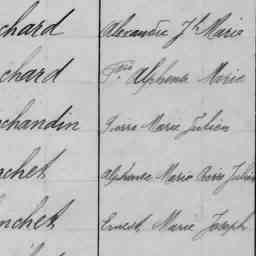 chard Alexandre Jh Marie
chard Fois Alphonse Marie
chandin Pierre Marie Julien
nchet Alphonse Marie Pierre Julien
nchet Ernest Marie Joseph